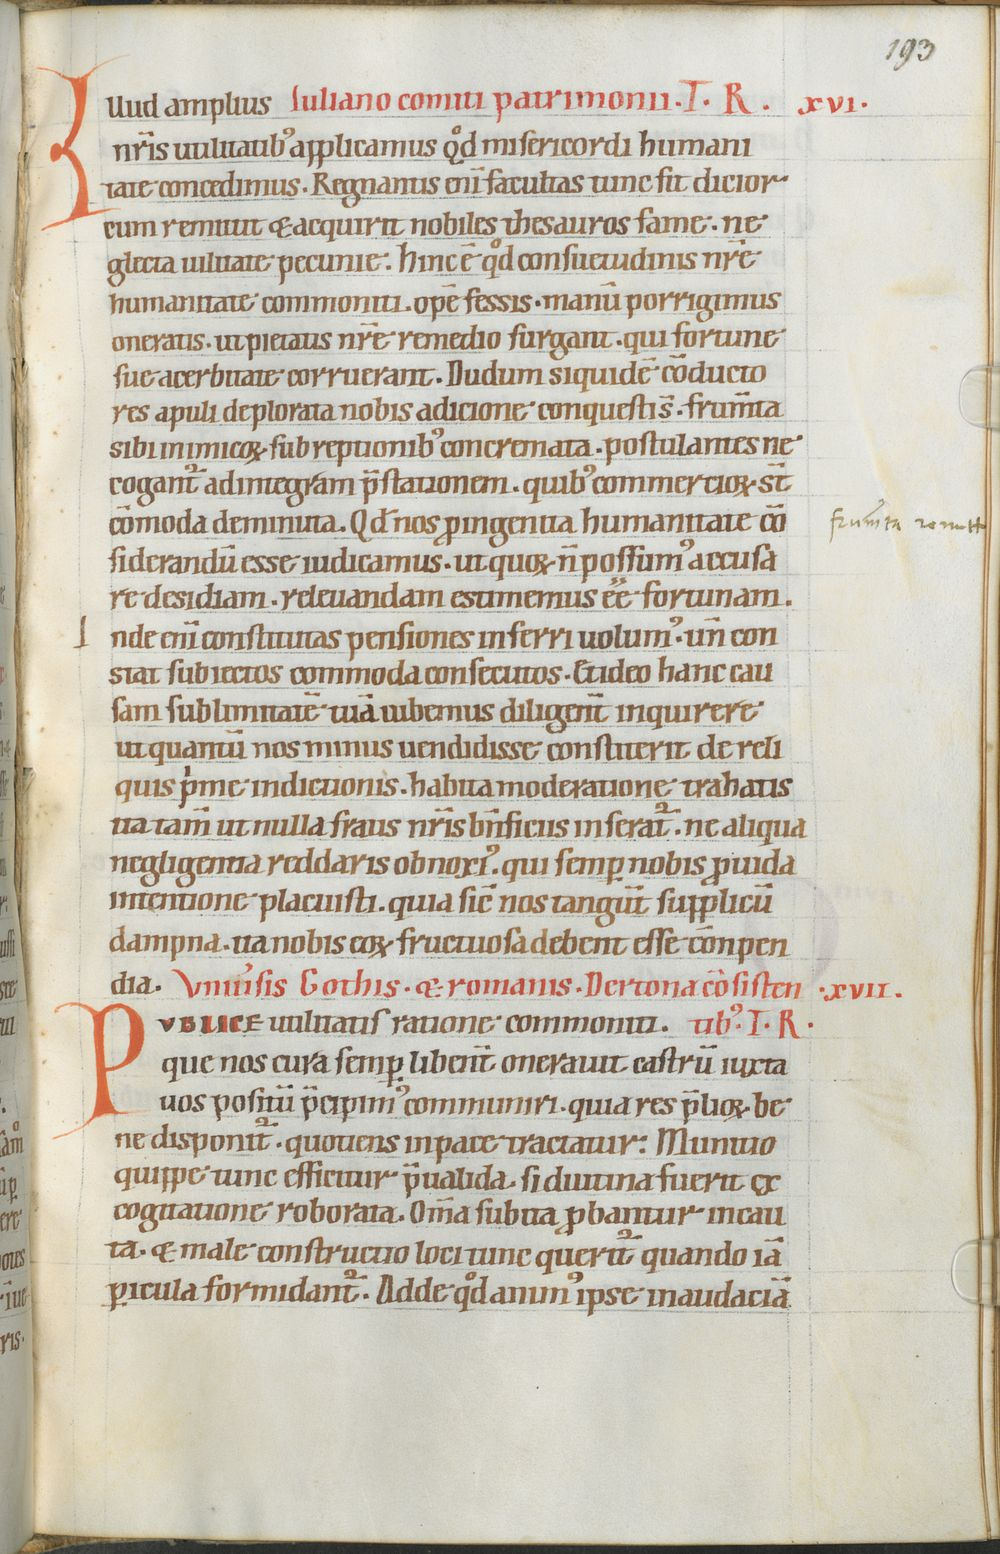 193
Illud amplius Iuliano comiti patrimonii. T. R. xvi.
nr̄is utilitatibꝰ applicamus qͦd misericordi humani
tate concedimus. Regnantis eni̅ facultas tunc fit dicior
cum remittit & acquirit nobiles thesauros fame. ne
glecta uilitate pecunie. hinc ē qͦd consuetudinis nr̄e
humanitate commoniti. ope̅ fessis. manu̅ porrigimus
oneratis. ut pietatis nr̄e remedio surgant. qui fortune
sue acerbitate corruerant. Dudum siquide̅ co̅ducto
res apuli deplorata nobis adicione conquesti s̅. frum̅ta
sibi inimicoꝝ subreptionibꝰ concremata. postulantes ne
cogantᷣ ad integram p̅stationem. quibꝰ commercioꝝ st̅
co̅moda deminuta. Qd̅ nos ꝓ ingenita humanitate co̅
siderandu̅ esse iudicamus. ut quoꝝ n̅ possumꝰ accusa
re desidiam. releuandam estimemus ee̅ fortunam.
Inde eni̅ constitutas pensiones inferri uolumꝰ. un̅ con
stat subiectos commoda consecutos. Et ideo hanc cau
sam sublimitate̅ tua̅ iubemus diligent̅ inquirere
ut quantu̅ nos minus uendidisse constiterit de reli
quis pͥme indictionis. habita moderatione trahatis
ita tam̅ ut nulla fraus nr̄is bn̅ficiis inseratᷣ. ne aliqua
negligentia reddaris obnoxiꝰ. qui semꝑ nobis ꝓuida
intentione placuisti. quia sic̅ nos tangu̅t supplicu̅
dampna. ita nobis eoꝝ fructuosa debent esse co̅npen
dia. Vniu̾sis Gothis. & romanis. Dertona co̅sisten .xvii.
PVBLICE utilitatis ratione commoniti. tibꝰ. T. R.
que nos cura semꝑ libent̅ onerauit castru̅ iuxta
uos positu̅ p̅cipimꝰ communiri. quia res p̅lioꝝ be
ne disponitᷣ. quotiens in pace tractatur. Munitio
quippe tunc efficitur p̅ualida. si diutina fuerit ex
cogitatione roborata. Om̅a subita ꝓbantur incau
ta. & male constructio loci tunc queritᷣ quando ia̅
ꝑicula formidantᷣ. Adde qͦd animꝰ ipse in audacia̅